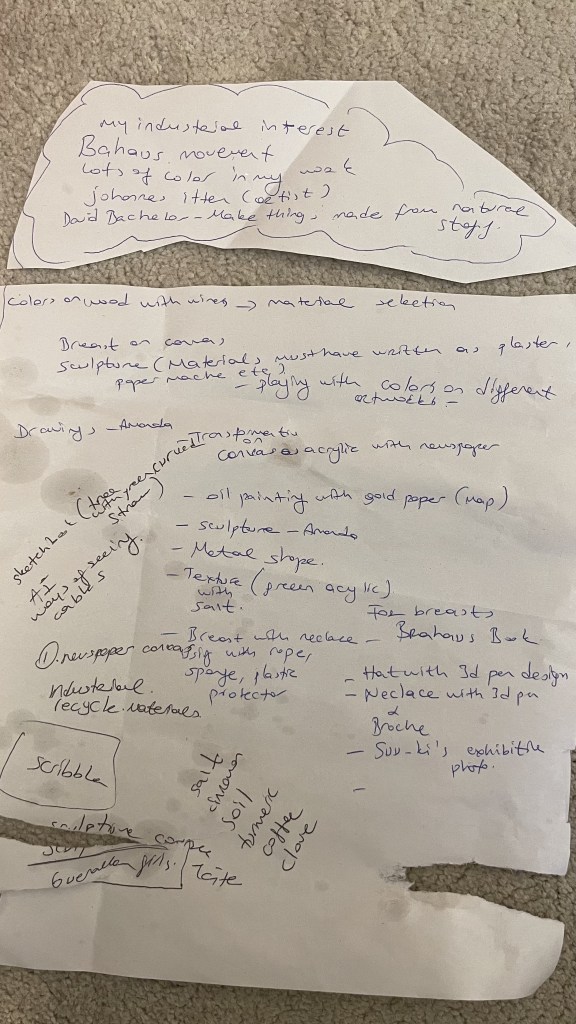 My industerial interest
Bahaus movement
Lots of color in my work
Johannes itten (artist)
David Bachelor - Make things made from natural
stuff.
Colors on wood with wires → material selection
Breast on canvas
sculpture (Materials must have written as plaster,
paper mache etc)
- playing with colors on different
artworks -
Drawings - Amanda
- Transformation
canvas as acrylic with newspaper
sketchbook (tree with green curved straw)
- oil painting with gold paper (map)
- sculpture - Amanda
- Metal shape.
- Texture (green acylic)
with
salt.
ways of seeing.
cables
For breasts
- Breast with neclace - Brahaus Book
with rope,
sponge, plastic
protector
① newspaper canvas
industerial.
recycle materials
- Hat with 3d pen design
- Neclace with 3d pen
&
Broche
- Suu-ki's exhibition
photo.
-
scribble
salt
cinnamon
soil
turmeric
coffee
clove
sculpture